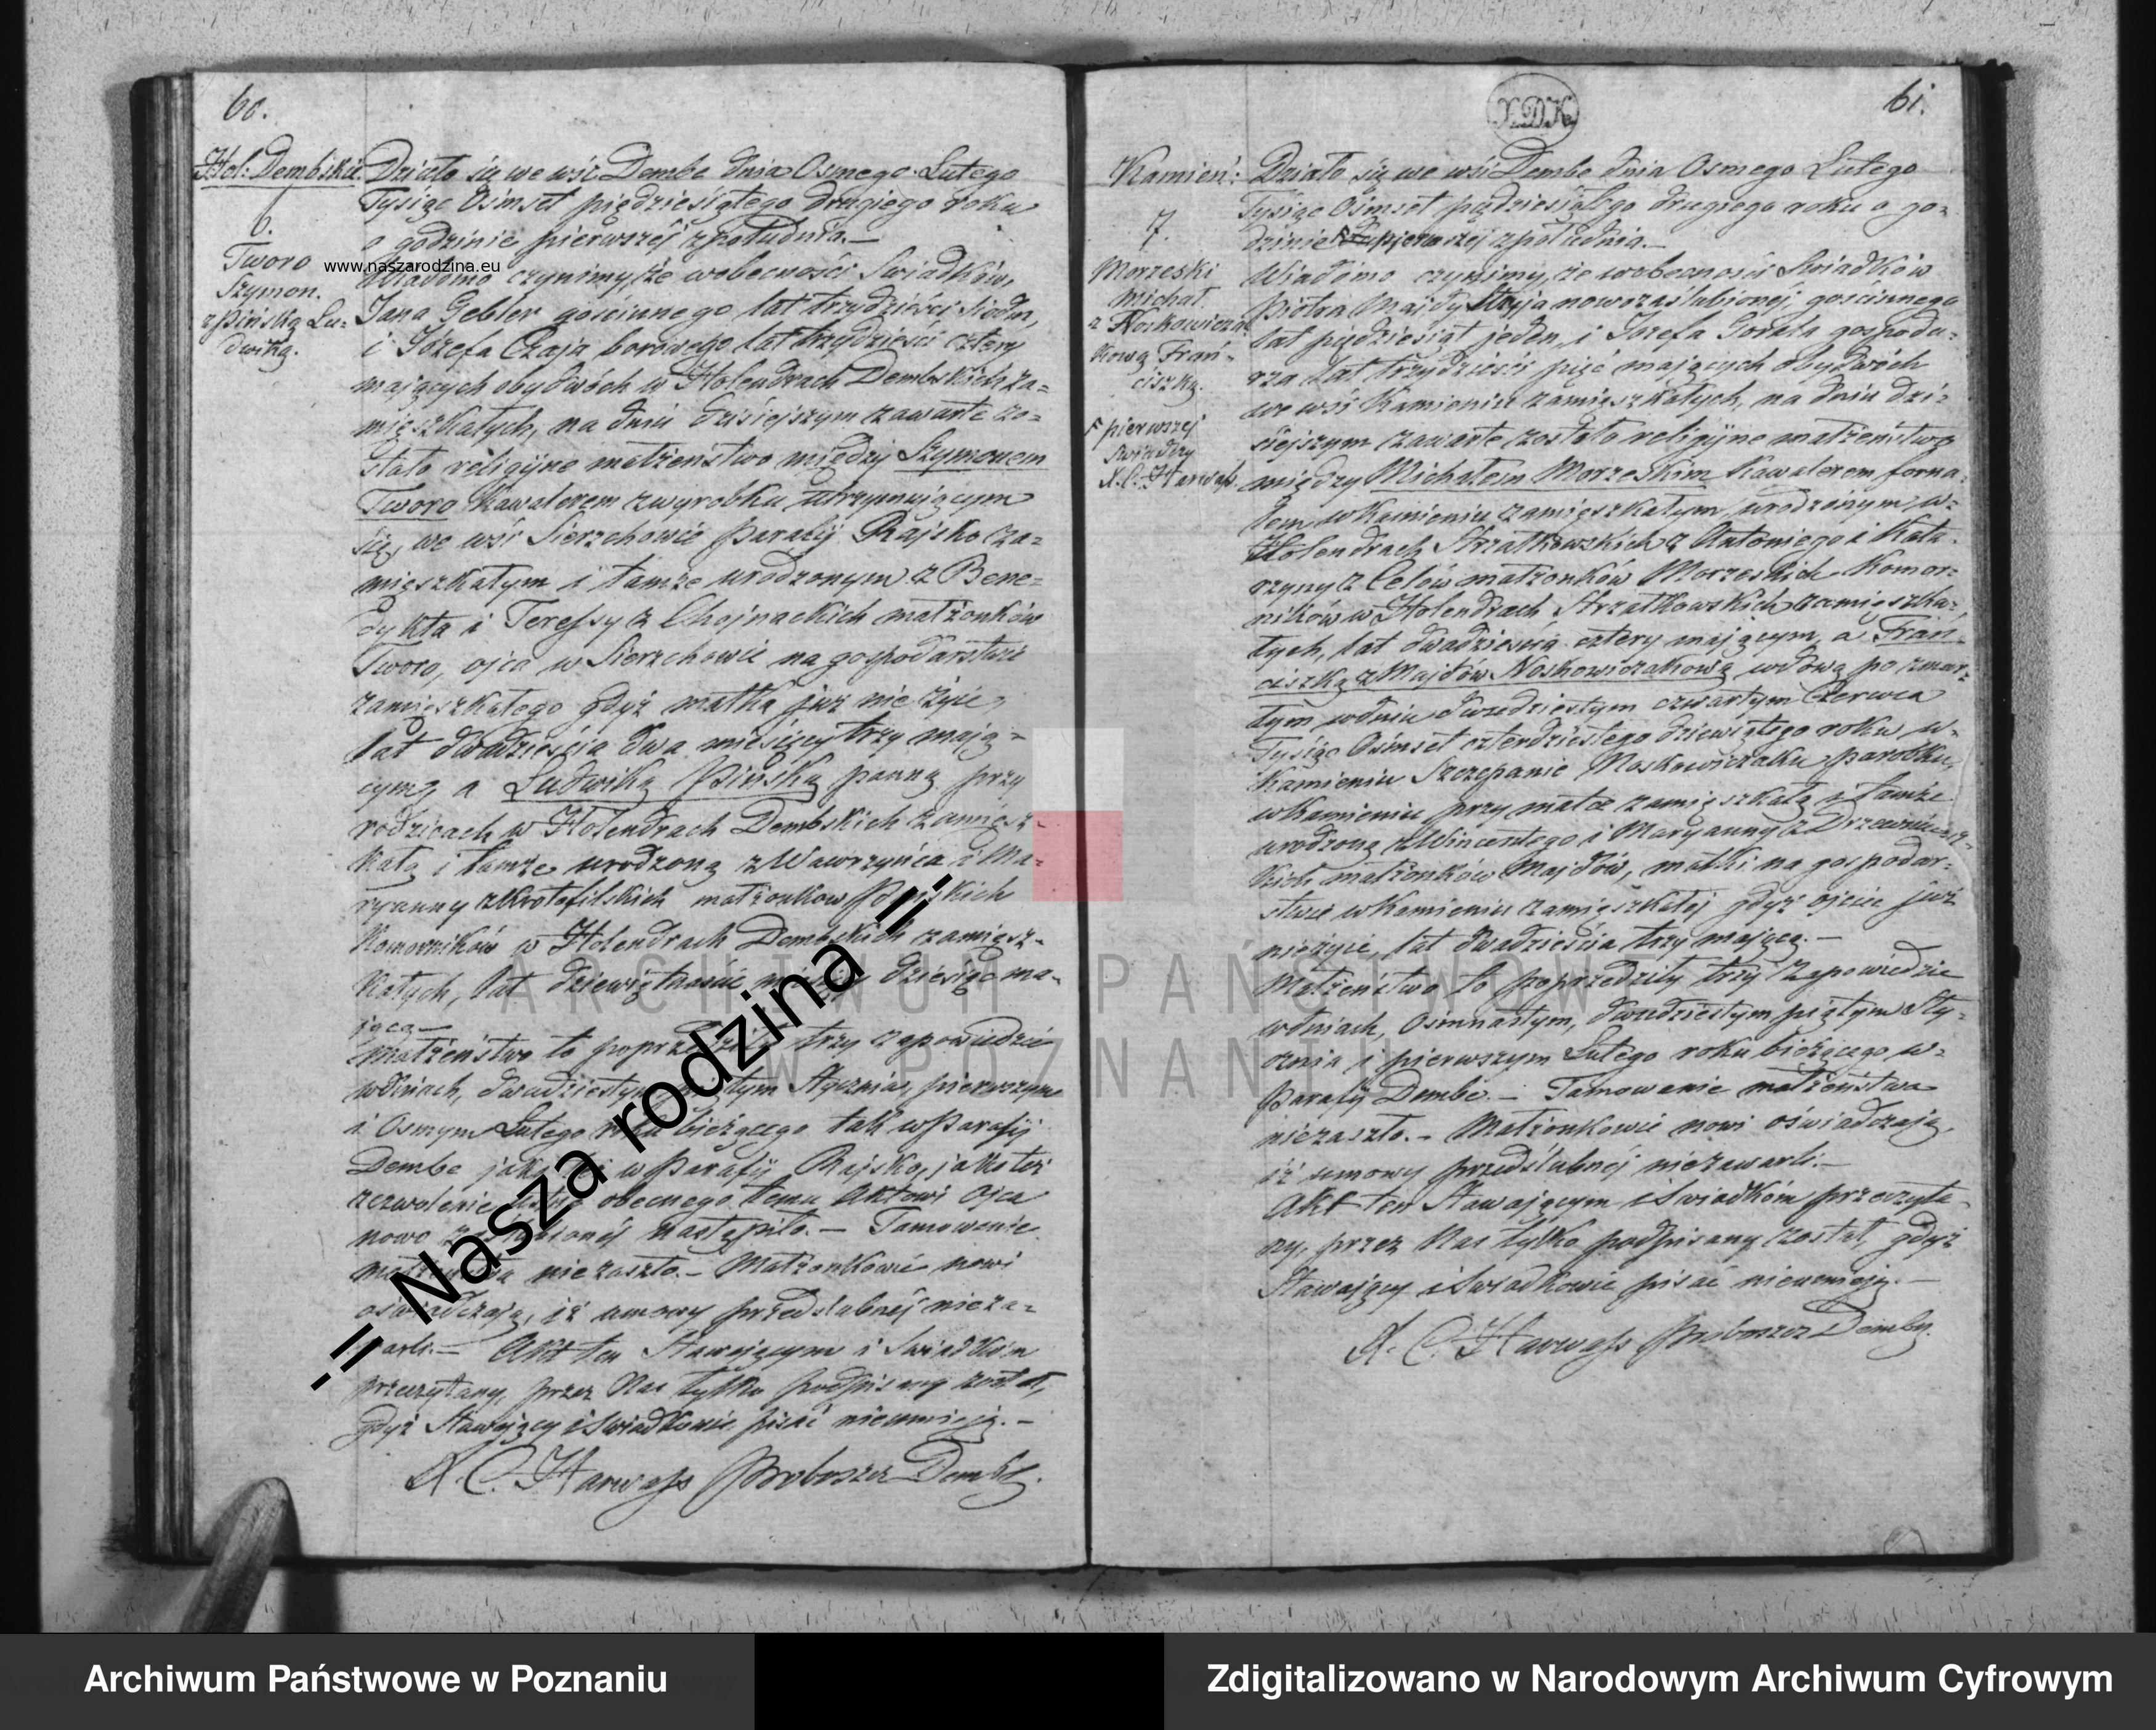 60.
Hol: Dembskie
6.
Tworo
Szymon.
z Pińską Lu=
dwiką.
Działo się we wsi Dembe dnia Osmego Lutego
Tysiąc Ośmset pięćdziesiątego drugiego roku
o godzinie pierwszej z południa.—
www.naszarodzina.eu
Wiadomo czynimy, że w obecności Świadków,
Jana Gebler gościnnego lat trzydzieści siedm,
i Józefa Czaja borowego lat trzydzieści cztery
mających obydwóch w Holendrach Dembskich za=
mięszkałych, na dniu dzisiejszym zawarte zo=
stało religijne małżeństwo między Szymonem
Tworo Kawalerem z wyrobku utrzymującym
się, we wsi Sierzchowie Parafij Rajsko za=
mięszkałym i tamże urodzonym z Bene=
dykta i Teressy z Chojnackich małżonków
Tworo, ojca w Sierzchowie na gospodarstwie
zamieszkałego gdyż matka już nie żyie,
lat dwadzieścia dwa miesięcy trzy mają=
cym, a Ludwiką Pińską panną przy
rodzicach w Holendrach Dembskich zamięsz=
kałą i tamże urodzoną z Wawrzyńca i Ma=
ryanny z Krotofilskich małżonkow Pińskich
Komorników w Holendrach Dembskich zamięsz=
kałych, lat dziewiętnaście miesięcy dziesięć ma=
jącą.—
Małżeństwo to poprzedziły trzy zapowiedzie
w dniach, dwudziestym piątym Stycznia, pierwszym
i Osmym Lutego roku bieżącego tak w Parafij
Dembe jako i w Parafij Rajsko, jako też
zezwolenie ustne obecnego temu Aktowi Ojca
nowo zaślubionej nastąpiło.— Tamowanie
małżeństwa niezaszło.— Małżonkowie nowi
oświadczają, iż umowy przedślubnej nieza=
warli.— Akt ten Stawającym i Świadkom
przeczytany, przez Nas tylko podpisany został,
gdyż Stawający i Świadkowie pisać nieumieją.—
X. C. Harwass Proboszcz Demby.
-= Nasza rodzina =-
X.D.K.
61.
Kamień:
7.
Morzeski
Michał.
z Noskowicza=
kową Fran=
ciszką.
pierwszej
świadczy
X. C. Harwass.
Działo się we wsi Dembe dnia Osmego Lutego
Tysiąc Ośmset pięćdziesiątego drugiego roku o go=
dzinie pierwszej z południa.—
Wiadomo czynimy, że w obecności Świadków
Piotra Majdy Stryja nowozaślubionej, gościnnego
lat pięćdziesiąt jeden, i Józefa Sorała gospoda=
rza lat trzydzieści pięć mających obydwóch
we wsi Kamieniu zamięszkałych, na dniu dzi=
siejszym zawarte zostało religijne małżeństwo
między Michałem Morzeskim Kawalerem forna=
lem w Kamieniu zamięszkałym, urodzonym w=
Holendrach Strzałkowskich z Antoniego i Kata=
rzyny z Celów małżonków Morzeskich Komor=
ników w Holendrach Strzałkowskich zamięszka=
łych, lat dwadzieścia cztery mającym, a Fran=
ciszką z Majdów Noskowiczakową wdową po zmar=
łym w dniu dwudziestym czwartym Czerwca
Tysiąc Ośmset czterdziestego dziewiątego roku w=
Kamieniu Szczepanie Noskowiczaku parobku,
w Kamieniu przy matce zamięszkałą i tamże
urodzoną z Wincentego i Maryanny z Drzewiec=
kich małżonków Majdów, matki na gospodar=
stwie w Kamieniu zamięszkałej gdyż ojciec już
nieżyie, lat dwadzieścia trzy mającą.—
Małżeństwo to poprzedziły trzy Zapowiedzie
w dniach, Osmnastym, dwudziestym piątym Sty=
cznia i pierwszym Lutego roku bieżącego w=
Parafij Dembe.— Tamowanie małżeństwa
niezaszło.— Małżonkowie nowi oświadczają,
iż umowy przedślubnej niezawarli.—
Akt ten Stawającym i Świadkom przeczyta=
ny, przez Nas tylko podpisany został, gdyż
Stawający i Świadkowie pisać nieumieją.—
X. C. Harwass Proboszcz Demby.
ARCHIWUM PAŃSTWOWE
W POZNANIU
Archiwum Państwowe w Poznaniu
Zdigitalizowano w Narodowym Archiwum Cyfrowym